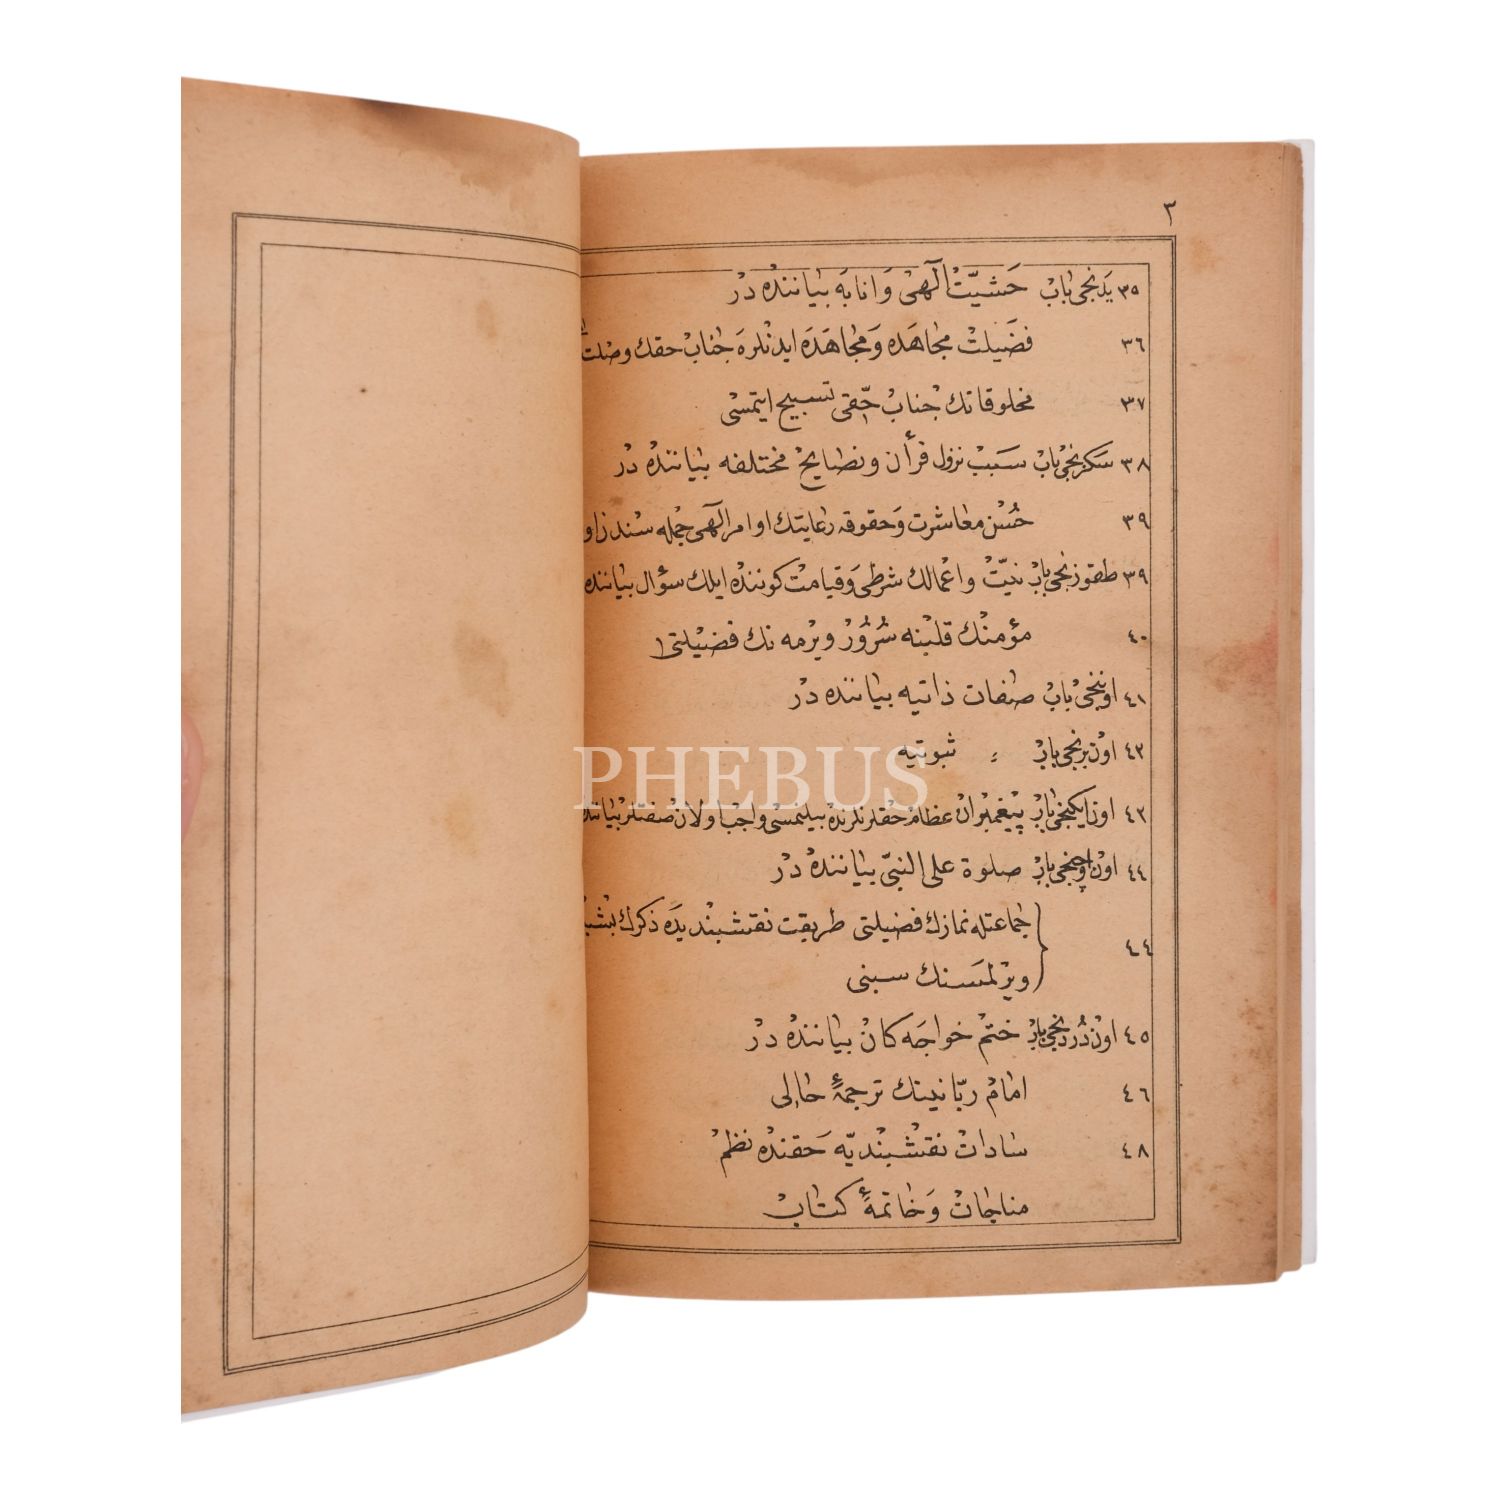 ٣
٣٥ يدنجى باب خشيت الٓهى و انابه بياننده در
٣٦ فضيلت مجاهده و مجاهده ايدنلره جناب حقك وصلت
٣٧ مخلوقاتك جناب حقى تسبيح ايتمسى
٣٨ سكزنجى باب سبب نزول قرأن و نصايح مختلفه بياننده در
٣٩ حسن معاشرت و حقوقه رعايتك اوامر الٓهى جمله سندن او
٣٩ طقوزنجى باب نيت و اعمالك شرطى و قيامت كوننده ايلك سؤال بياننده
٤٠ مؤمنك قلبنه سرور ويرمه نك فضيلتى
٤١ اوننجى باب صفات ذاتيه بياننده در
٤٢ اون برنجى باب ٴ ثبوتيه
PHEBUS
٤٣ اون ايكنجى باب پيغمبران عظام حقلرنده بيلنمسى واجب اولان صفتلر بياننده
٤٤ اون اوچنجى باب صلوة على النبى بياننده در
٤٤ جماعتله نمازك فضيلتى طريقت نقشبنديه ده ذكرك
ويرلمسنك سببى
٤٥ اون دردنجى باب ختم خواجه كان بياننده در
٤٦ امام ربانينك ترجمۀ حالى
٤٨ سادات نقشبنديه حقنده نظم
مناجات و خاتمۀ كتاب